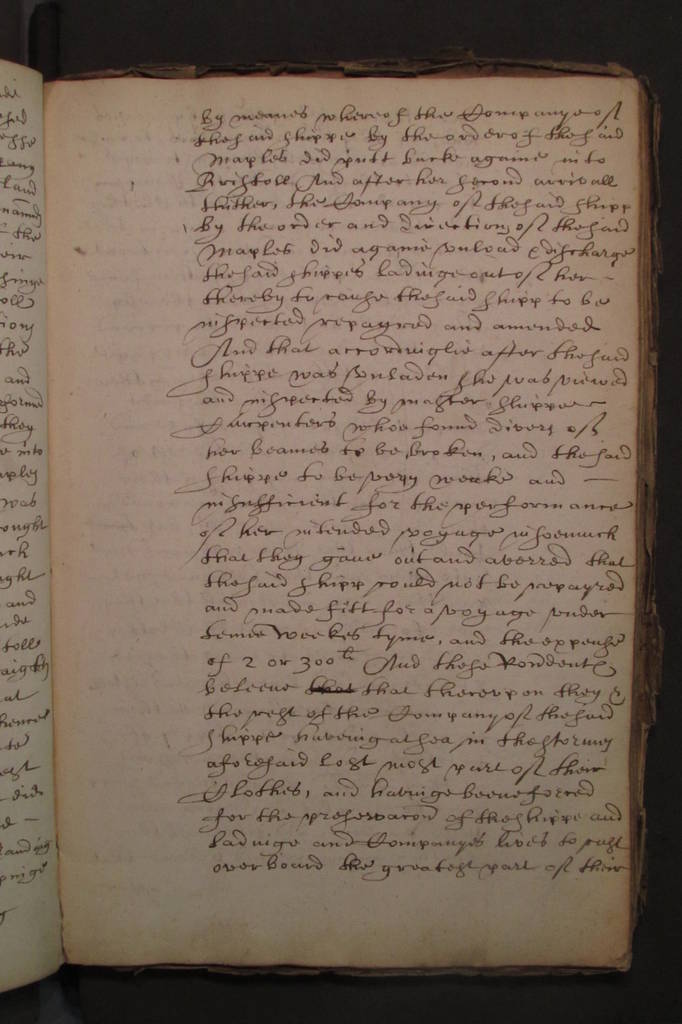 by meanes whereof the Companye of
the said shippe by the order of the said
Maples did putt backe againe into
Bristoll And after her second arrivall
thither, the Company of the said shipp
by the order and direction of the said
Maples did againe unload & discharge
the said shippes ladinge out of her
thereby to cause the said shipp to be
inspected repayred and amended
And that accordinglie after the said
shippe was unladen she was viewed
and inspected by master shippe
Carpenters whoe found divers of
her beames to be broken, and the said
shippe to be very weake and
insufficient for the performance
of her intended voyage insoemuch
that they gave out and averred that
the said shipp could not be repayred
and made fitt for a voyage under
tenne weekes tyme, and the expense
of 2 or 300li And these Rondents
beleeve that that thereupon they &
the rest of the Company of the said
shippe haveing at sea in the stormes
aforesaid lost most part of their
Clothes, and havinge beene forced
for the preservacon of the shippe and
ladinge and Companyes lives to cast
over board the greatest part of their